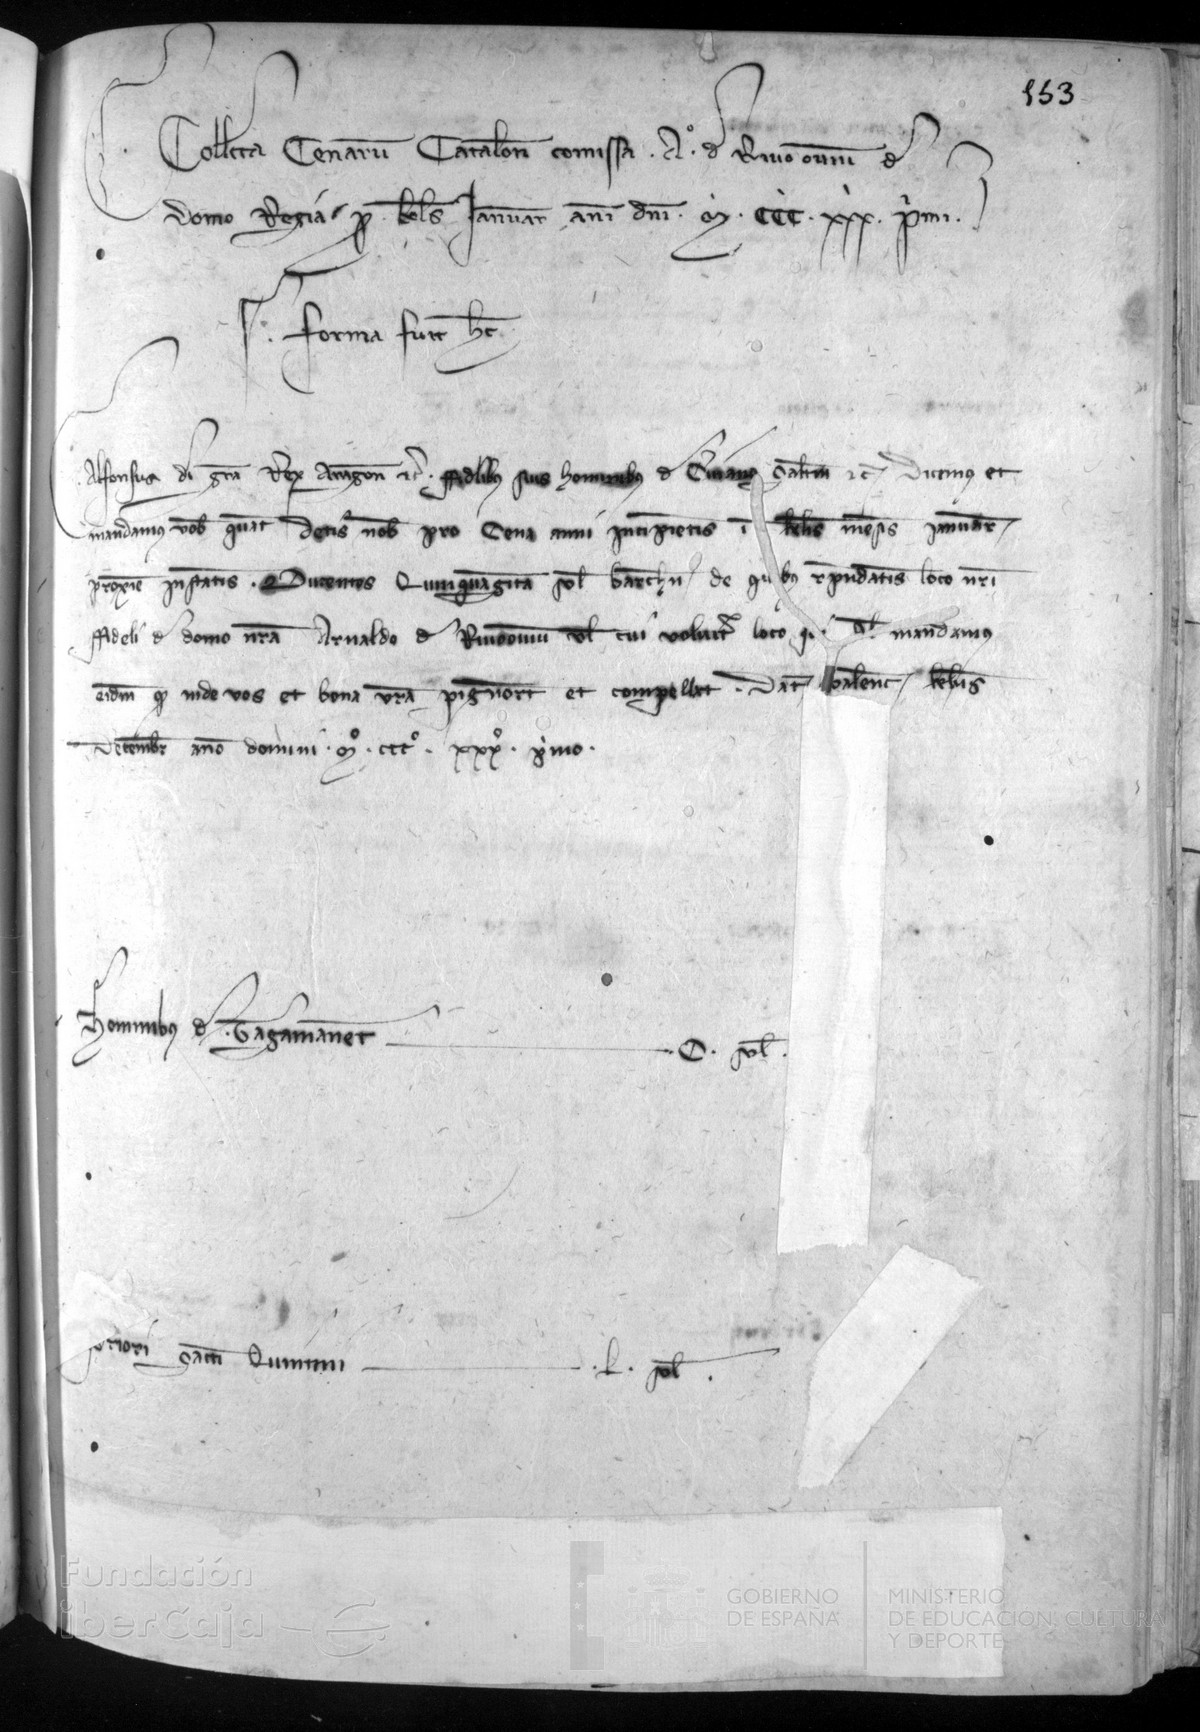 153
Collecta Cenarum Cataloñ comissa . A.º d Rivo ovium d
domo Regia p kls Januar ani dni . M . CCC . xxx . primi .
forma fuit hec
Alfonsus di gra Rex Aragon etc . ffidelibus suis hominibus d salutem etc Dicimus et
mandamus vob quat detis nob pro Cena anni incipientis i kls mensis Januar
proxie instantis . Ducentos Quinquaginta sol barchn de quibus respondatis loco nri
ffideli d domo nra Arnaldo d Rivo ovium vl cui voluit loco mandamus
eidm inde vos et bona vra pignoret et compellat . Dat valenc kls
Decembr ano domini . Mº . CCCº . xxxº . primo .
Hominibus d Gagamanet . C . sol .
priori sancti . L . sol .
Fundación
iberCaja
GOBIERNO
DE ESPAÑA
MINISTERIO
DE EDUCACIÓN, CULTURA
Y DEPORTE